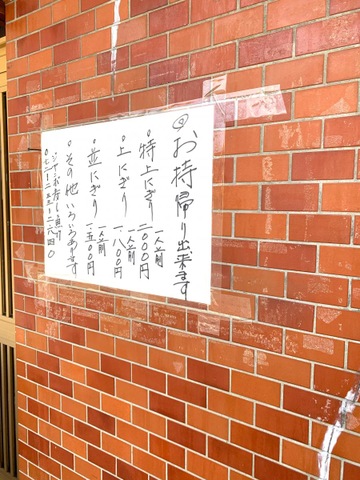 お持帰り出来ます
・特上にぎり 一人前 二〇〇〇円
・上にぎり 一人前 一八〇〇円
・並にぎり 一人前 一五〇〇円
・その他いろいろあります